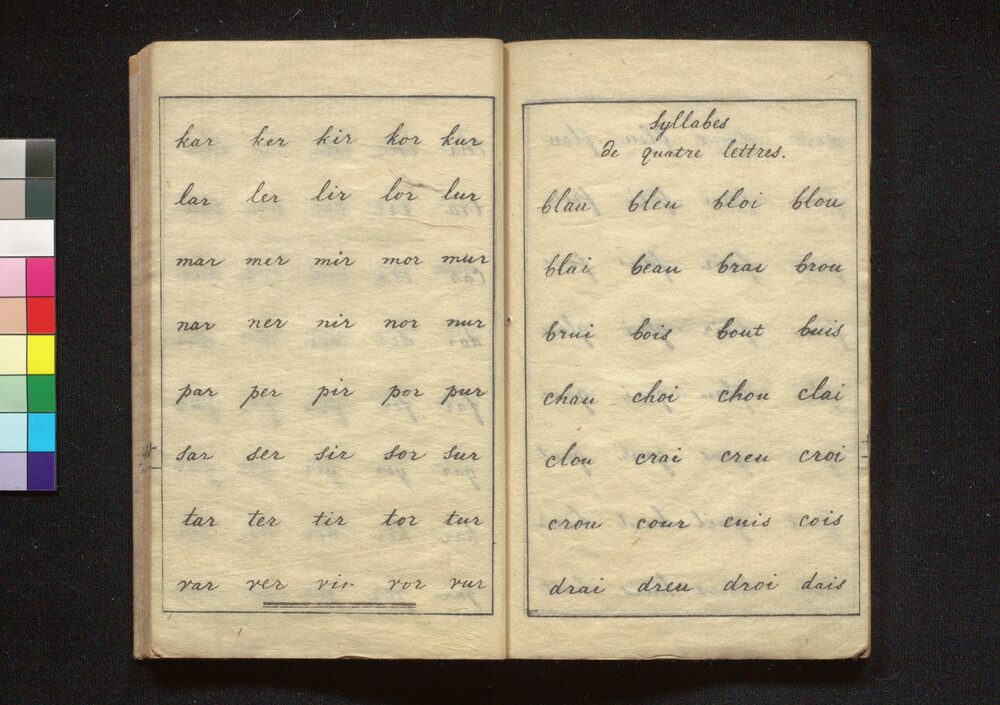 kar ker kir kor kur
lar ler lir lor lur
mar mer mir mor mur
nar ner nir nor nur
par per pir por pur
sar ser sir sor sur
tar ter tir tor tur
var ver vir vor vur
Syllabes
de quatre lettres.
blau bleu bloi blou
blai beau brai brou
brui bois bout buis
chau choi chou clai
clou crai creu croi
crou cour cuis cois
drai dreu droi dais